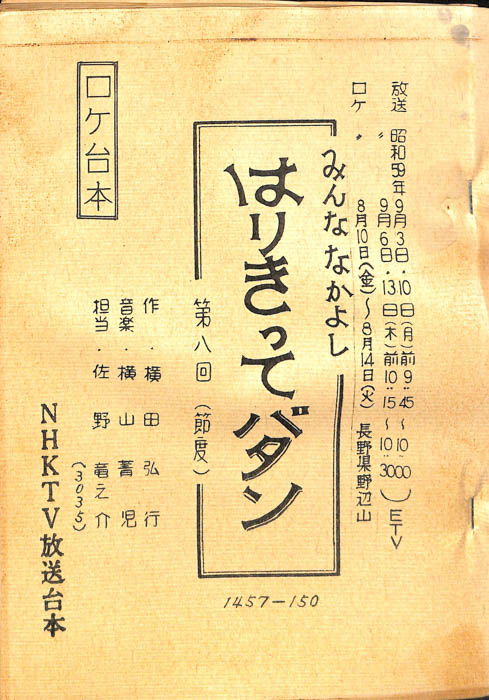 放送 昭和59年9月3日・10日(月)前9:45〜10:00
〃 9月6日・13日(木)前10:15〜10:30
ETV
ロケ 〃 8月10日(金)〜8月14日(火) 長野県野辺山
みんな なかよし
はりきってバタン
第八回(節度)
作・横田弘行
音楽・横山菁児
担当・佐野竜之介
(3035)
NHKTV放送台本
ロケ台本
1457-150